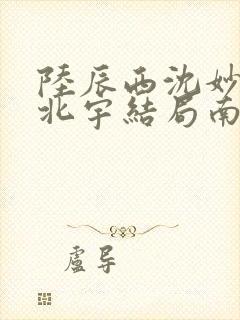 陸辰西沈妙
北宇結局南
盧导